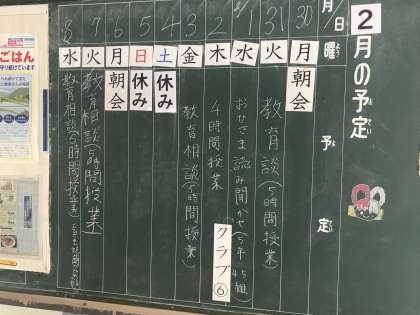 2月の予定
月/日
曜
予定
30 月 朝会
31 火 教育談(5時間授業)
2/1 水 おひさま読み聞かせ(5年4.5組)
クラブ⑥
2 木 4時間授業
3 金 教育相談(5時間授業)
4 土 休み
5 日 休み
6 月 朝会
7 火 教育相談(5時間授業)
8 水 教育相談(5時間授業)
ごはん